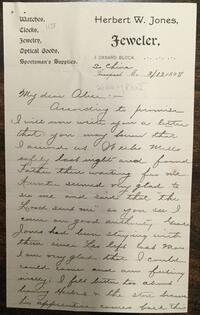 Watches,
Clocks,
Jewelry,
Optical Goods,
Sportsman's Supplies.
Herbert W. Jones,
Jeweler,
3 ORNARD BLOCK.
So China
Me. 9/12 1898
My dear Alice:—
According to promise
I will now write you a letter
that you may know that
I arrived at Weeks Mills
safely last night and found
Father there waiting for me.
Aunt seemed very glad to
see me and said that the
Lord sent me as you see I
came on good authority
Jones had been staying with
them since he left last Mon.
I am very glad that I could
could come and am feeling
nicely. I felt better too about
leaving Herbert & the store because
his apprentice comes back this